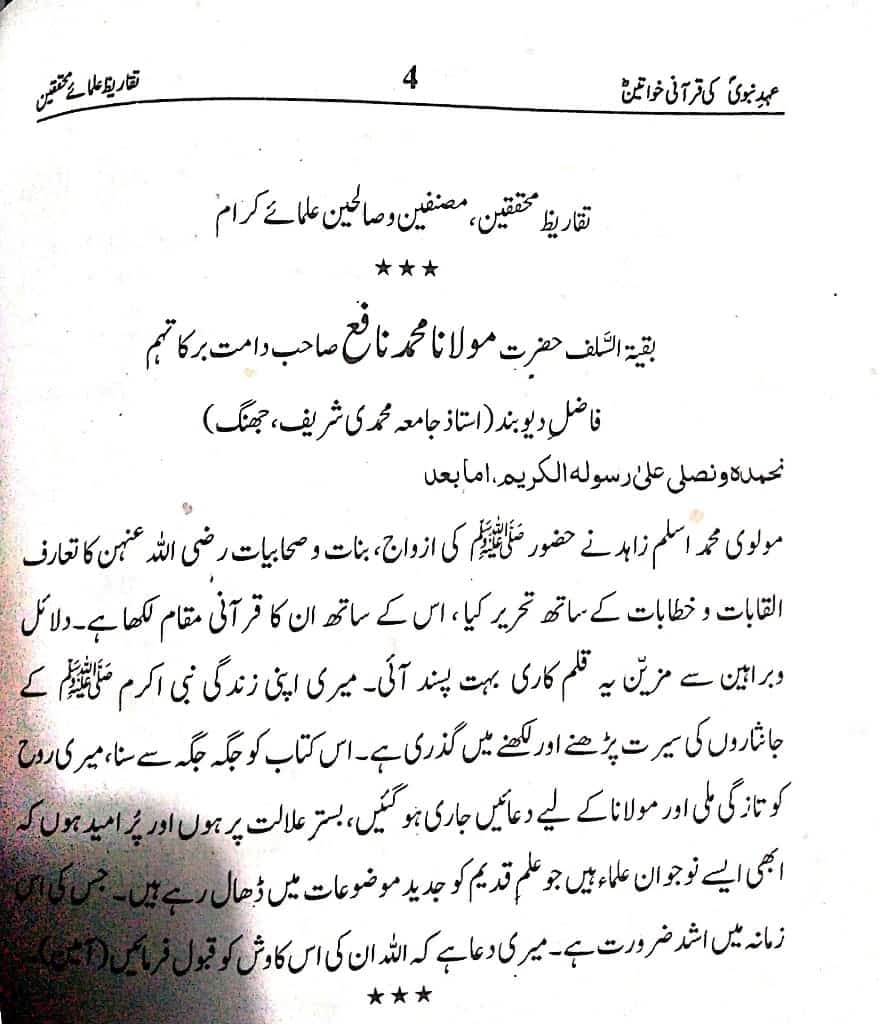 عہدِ نبویؐ کی قرآنی خواتینؓ 4 تقاریظ علمائے محققین
تقاریظ محققین، مصنفین و صالحین علمائے کرام
★★★
بقیۃ السَّلف حضرت مولانا محمد نافع صاحب دامت برکاتہم
فاضلِ دیوبند (استاذ جامعہ محمدی شریف، جھنگ)
نحمدہ و نصلی علیٰ رسولہ الکریم، اما بعد
مولوی محمد اسلم زاہد نے حضور ﷺ کی ازواج، بنات و صحابیات رضی اللہ عنہن کا تعارف
القابات و خطابات کے ساتھ تحریر کیا، اس کے ساتھ ان کا قرآنی مقام لکھا ہے۔ دلائل
وبراہین سے مزیّن یہ قلم کاری بہت پسند آئی۔ میری اپنی زندگی نبی اکرم ﷺ کے
جانثاروں کی سیرت پڑھنے اور لکھنے میں گذری ہے۔ اس کتاب کو جگہ جگہ سے سنا، میری روح
کو تازگی ملی اور مولانا کے لیے دعائیں جاری ہو گئیں، بستر علالت پر ہوں اور پُر امید ہوں کہ
ابھی ایسے نوجوان علماء ہیں جو علمِ قدیم کو جدید موضوعات میں ڈھال رہے ہیں۔ جس کی اس
زمانہ میں اشد ضرورت ہے۔ میری دعا ہے کہ اللہ ان کی اس کاوش کو قبول فرمائیں (آمین)۔
★★★